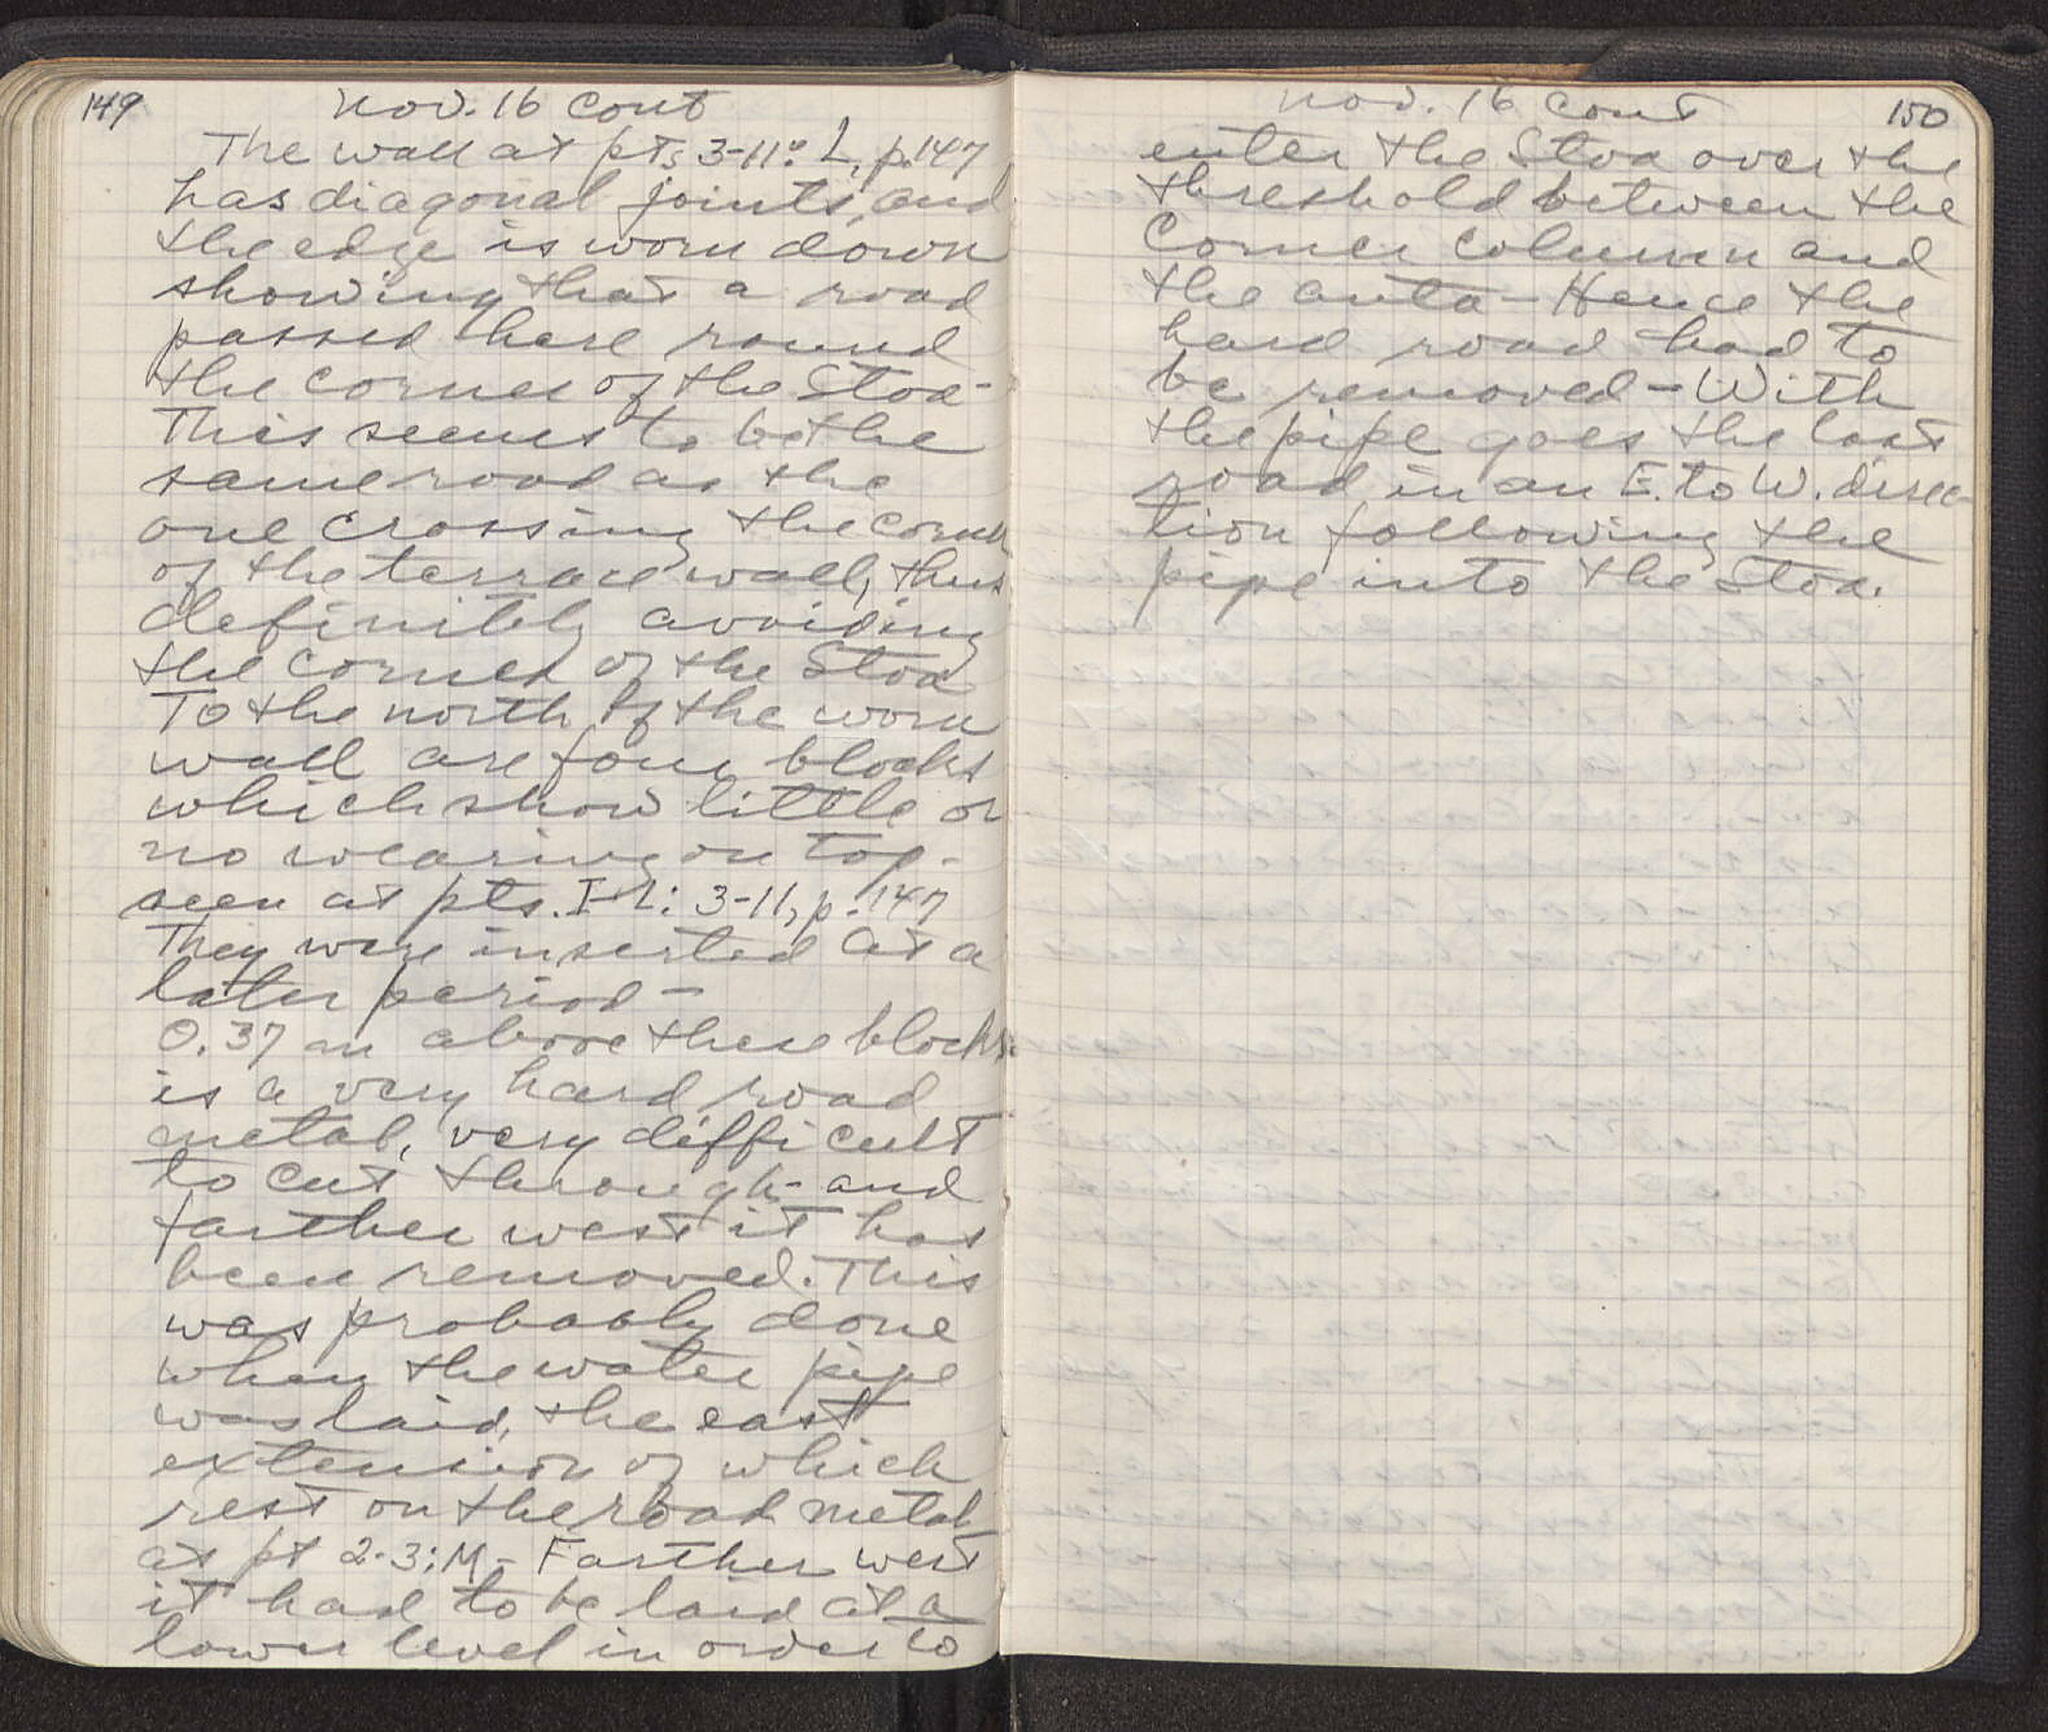 149
Nov. 16 cont
The wall at pts 3-11: L, p.147
has diagonal joints, and
the edge is worn down
showing that a road
passed here round
the corner of the Stoa-
This seems to be the
same road as the
one crossing the corner
of the terrace wall, thus
definitely avoiding
the corner of the Stoa
To the north of the worn
wall are four blocks
which show little or
no wearing on top-
seen at pts. I-L: 3-11, p. 147
They were inserted at a
later period-
0.37 m above these blocks
is a very hard road
metal, very difficult
to cut through- and
farther west it has
been removed. This
was probably done
when the water pipe
was laid, the east
extension of which
rest on the road metal
at pt 2-3: M- Farther west
it had to be laid at a
lower level in order to
Nov. 16 cont
150
enter the Stoa over the
threshold between the
Corner column and
the anta- Hence the
hard road had to
be removed- With
the pipe goes the last
road in an E. to W. direc-
tion following the
pipe into the Stoa.